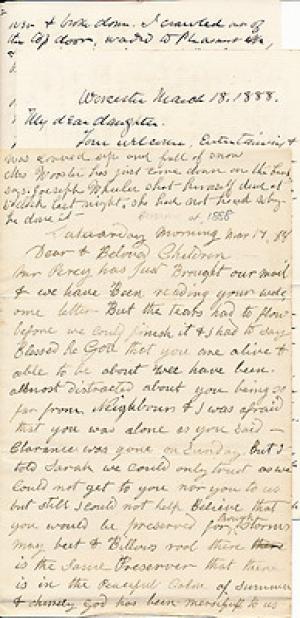 over & broke down. I crawled out of
the top door, waded to Pleasant
Worcester March 18, 1888.
My dear daughter.
Your welcome, Entertaining &
was covered up and full of snow
Mrs Wooster has just come down on the
says Joseph Wheeler shot himself dead at
last night, she had not heard why
he done it
of 1888
Saturday Morning Mar 17, 88
Dear & Beloved Children
Mr Percy has just Brought our mail
& we have Been reading your welc
ome letter But the tears had to flow
before we could finish it & I had to say
Blessed be God that you are alive &
able to be about Wee have been
almost distracted about you being so
far from Neighbours & I was afraid
that you was alone as you said
Clarence was gone on Sunday But I
told Sarah we could only trust as we
Could not get to you nor you to us
but still I could not help Believe that
you would be preserved for though Storms
may beet & Billows rool there there
is the Same Preserver that there
is in the Peaceful Calm of Summer
& surely God has been mercifull to us